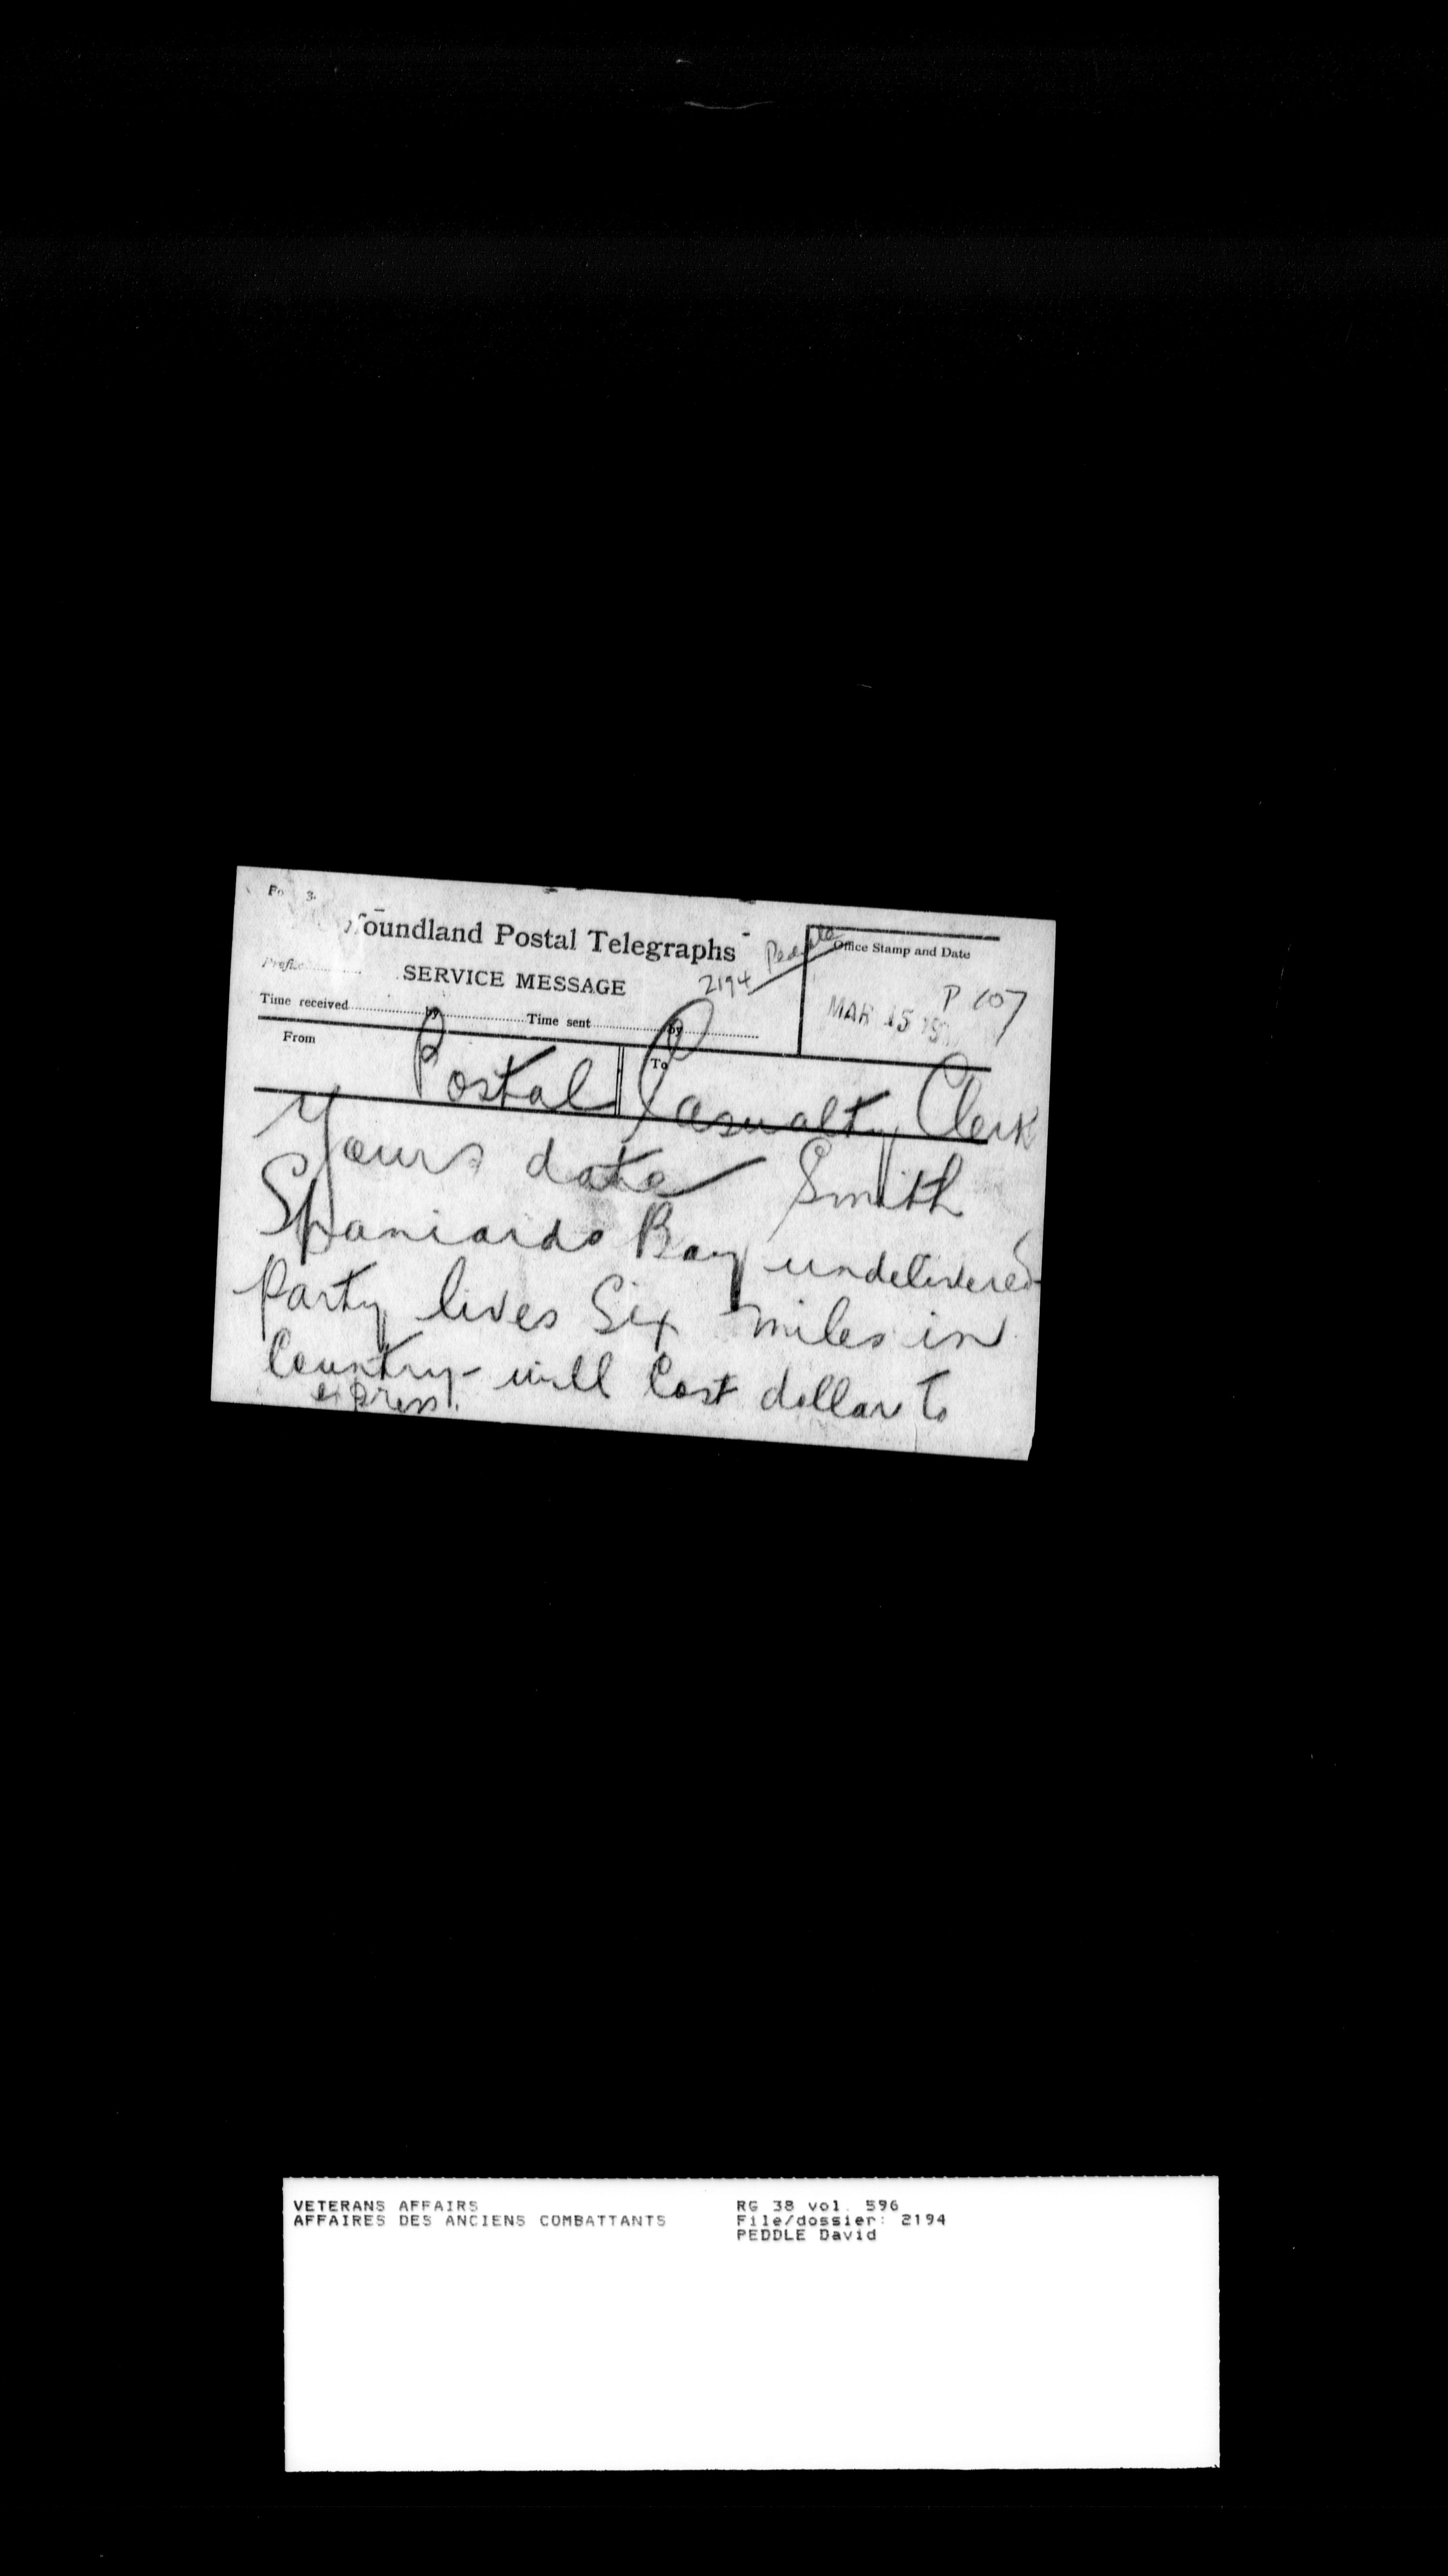 Fo 3.
foundland Postal Telegraphs
2194 Peddle
Office Stamp and Date
Prefix
SERVICE MESSAGE
P 107
MAR 15
Time received by Time sent by
From
To
Postal Casualty Clerk
Yours date Smith
Spaniards Bay undelivered
Party lives Six miles in
Country - will Cost dollar to
express.
VETERANS AFFAIRS
AFFAIRES DES ANCIENS COMBATTANTS
RG 38 vol. 596
File/dossier: 2194
PEDDLE David